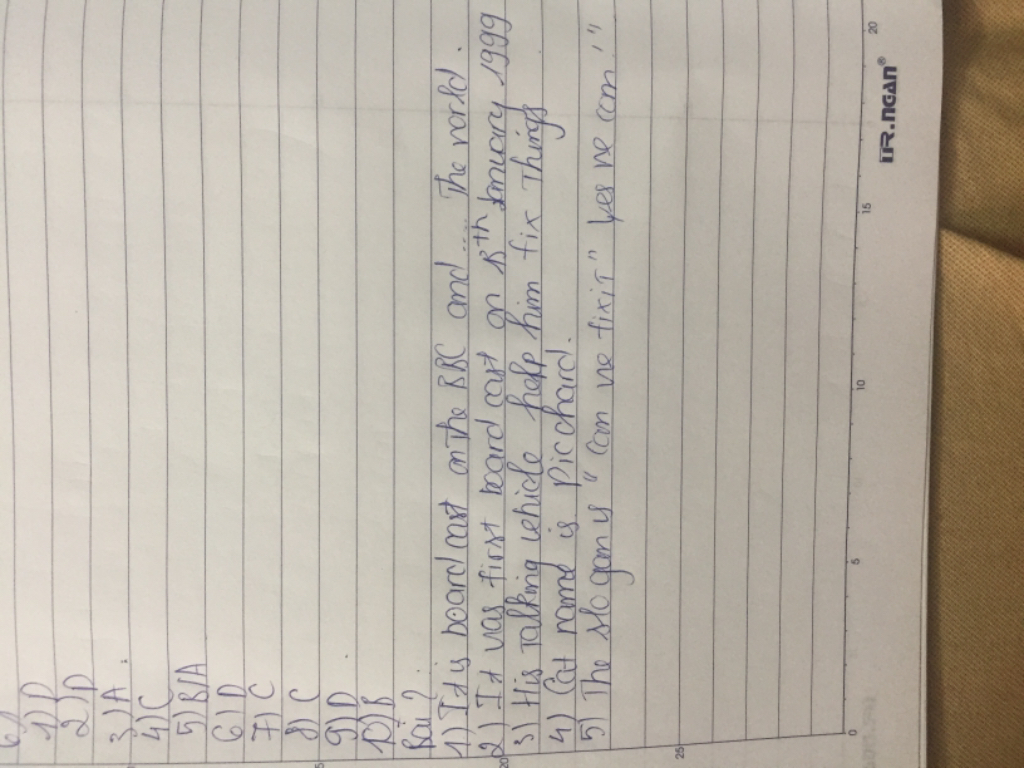 6)
1) D
2) D
3) A.
4) C
5) B/A
6) D
7) C
8) C
9) D
10) B
Bài 2
1) It is board cast on the BBC and..... The world.
2) It was first board cast on 8th January 1999
3) His talking vehicle help him fix Things
4) Cat name is Picchard.
5) The slogan is "Can we fix it" Yes we can!"
TR.NGAN®
0 5 10 15 20
20
25